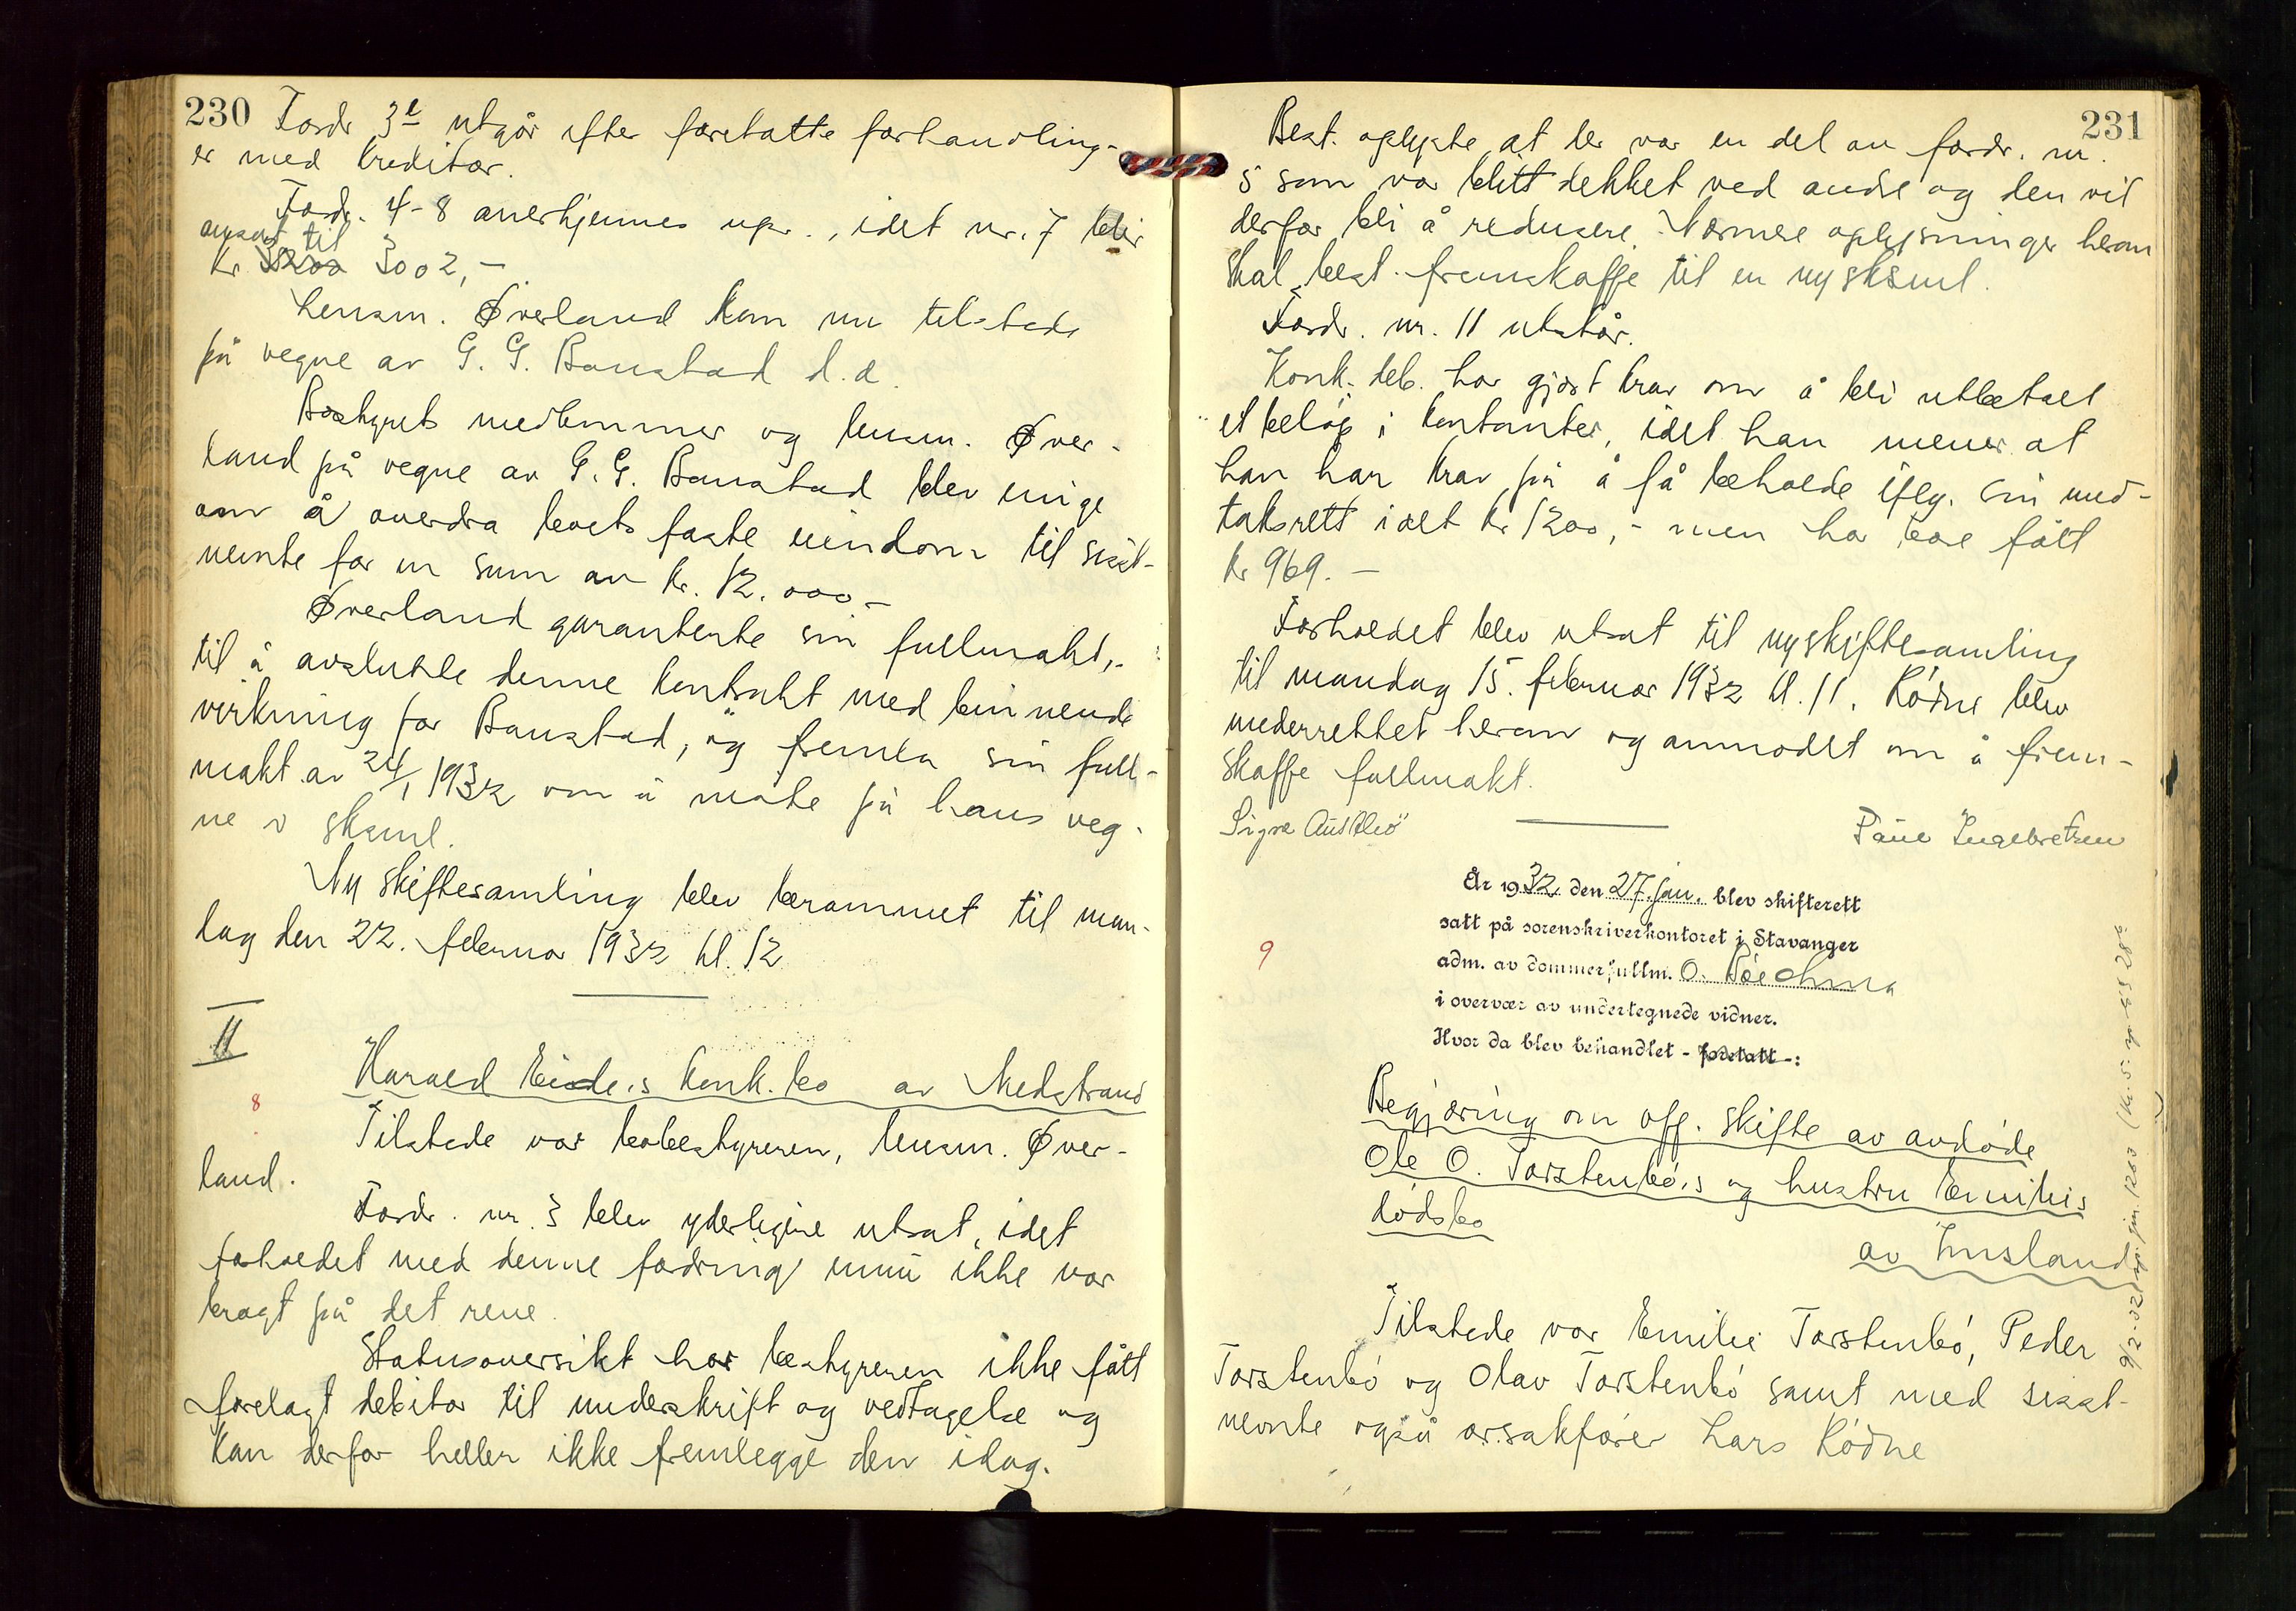 230
Fordr 3e utgår efter foretatte forhandling-
er med kreditor.
Fordr. 4-8 anerkjennes upr., idet nr. 7 blir
ansat til
kr. 3200 3002,-
Lensm. Øverland kom nu tilstede
på vegne av G. G. Banstad d.d.
Bostyrets medlemmer og lensm. Øver-
land på vegne av G. G. Banstad blev enige
om å overdra boets faste eiendom til sist-
nevnte for en sum av kr. 12.000,-
Øverland garanterte sin fullmakt,
til å avslutte denne kontrakt med bindende
virkning for Banstad, og fremla sin full-
makt av 24/1 1932 om å møte på hans veg-
ne i sksml.
Ny skiftesamling blev berammet til man-
dag den 22. februar 1932 kl. 12
II
8
Harald Eide's konk.bo av Nedstrand
Tilstede var bobestyreren, lensm. Øver-
land.
Fordr. nr. 3 blev yderligere utsat, idet
forholdet med denne fordring ennu ikke var
bragt på det rene.
Statusoversikt har bestyreren ikke fått
forelagt debitor til underskrift og vedtagelse og
kan derfor heller ikke fremlegge den idag.
231
Best. oplyste at der var en del av fordr. nr.
5 som var blitt dekket ved andre og den vil
derfor bli å redusere. Nærmere oplysninger herom
skal best. fremskaffe til en ny sksml.
Fordr. nr. 11 utstår.
Konk. deb. har gjort krav om å bli utbetalt
et beløp i kontanter, idet han mener at
han har krav på å få beholde iflg. sin und-
taksrett idet kr 1200,- men har bare fått
kr 969.-
Forholdet blev utsat til ny skiftesamling
til mandag 15. februar 1932 kl. 11. Rødne blev
underrettet herom og anmodet om å frem-
skaffe fullmakt.
Signe Austbø
Paul Ingebretsen
9
År 1932 den 27. jan. blev skifterett
satt på sorenskriverkontoret i Stavanger
adm. av dommerfullm. O.
i overvær av undertegnede vidner.
Hvor da blev behandlet - foretatt -:
Begjæring om off. skifte av avdøde
Ole O. Torstenbø's og hustru Emilie's
dødsbo
av Imsland
Tilstede var Emilie Torstenbø, Peder
Torstenbø og Olav Torstenbø samt med sist-
nevnte også o.r.sakfører Lars Rødne